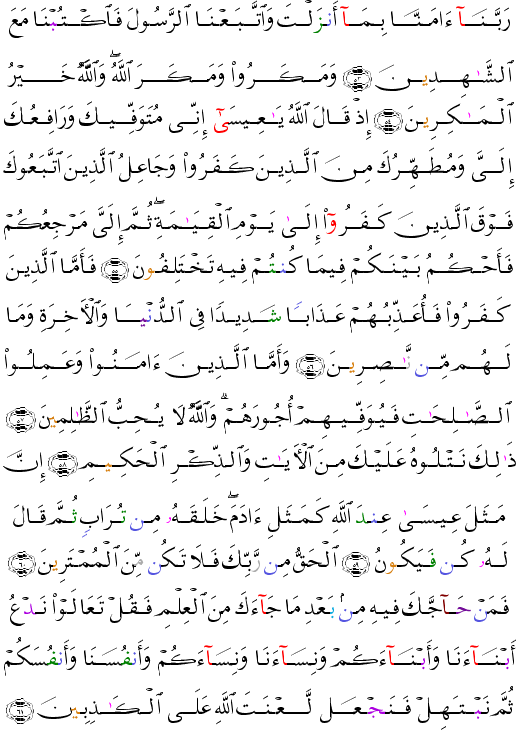 رَبَّنَآ ءَامَنَّا بِمَآ أَنزَلْتَ وَٱتَّبَعْنَا ٱلرَّسُولَ فَٱكْتُبْنَا مَعَ
ٱلشَّٰهِدِينَ ۝٥٣ وَمَكَرُوا۟ وَمَكَرَ ٱللَّهُ ۖ وَٱللَّهُ خَيْرُ
ٱلْمَٰكِرِينَ ۝٥٤ إِذْ قَالَ ٱللَّهُ يَٰعِيسَىٰٓ إِنِّى مُتَوَفِّيكَ وَرَافِعُكَ
إِلَىَّ وَمُطَهِّرُكَ مِنَ ٱلَّذِينَ كَفَرُوا۟ وَجَاعِلُ ٱلَّذِينَ ٱتَّبَعُوكَ
فَوْقَ ٱلَّذِينَ كَفَرُوٓا۟ إِلَىٰ يَوْمِ ٱلْقِيَٰمَةِ ۖ ثُمَّ إِلَىَّ مَرْجِعُكُمْ
فَأَحْكُمُ بَيْنَكُمْ فِيمَا كُنتُمْ فِيهِ تَخْتَلِفُونَ ۝٥٥ فَأَمَّا ٱلَّذِينَ
كَفَرُوا۟ فَأُعَذِّبُهُمْ عَذَابًا شَدِيدًا فِى ٱلدُّنْيَا وَٱلْءَاخِرَةِ وَمَا
لَهُم مِّن نَّٰصِرِينَ ۝٥٦ وَأَمَّا ٱلَّذِينَ ءَامَنُوا۟ وَعَمِلُوا۟
ٱلصَّٰلِحَٰتِ فَيُوَفِّيهِمْ أُجُورَهُمْ ۗ وَٱللَّهُ لَا يُحِبُّ ٱلظَّٰلِمِينَ ۝٥٧
ذَٰلِكَ نَتْلُوهُ عَلَيْكَ مِنَ ٱلْءَايَٰتِ وَٱلذِّكْرِ ٱلْحَكِيمِ ۝٥٨ إِنَّ
مَثَلَ عِيسَىٰ عِندَ ٱللَّهِ كَمَثَلِ ءَادَمَ ۖ خَلَقَهُۥ مِن تُرَابٍ ثُمَّ قَالَ
لَهُۥ كُن فَيَكُونُ ۝٥٩ ٱلْحَقُّ مِن رَّبِّكَ فَلَا تَكُن مِّنَ ٱلْمُمْتَرِينَ ۝٦٠
فَمَنْ حَآجَّكَ فِيهِ مِنۢ بَعْدِ مَا جَآءَكَ مِنَ ٱلْعِلْمِ فَقُلْ تَعَالَوْا۟ نَدْعُ
أَبْنَآءَنَا وَأَبْنَآءَكُمْ وَنِسَآءَنَا وَنِسَآءَكُمْ وَأَنفُسَنَا وَأَنفُسَكُمْ
ثُمَّ نَبْتَهِلْ فَنَجْعَل لَّعْنَتَ ٱللَّهِ عَلَى ٱلْكَٰذِبِينَ ۝٦١